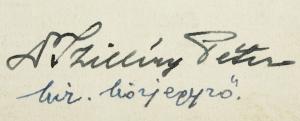 Szillíny Péter
kir. közjegyző.